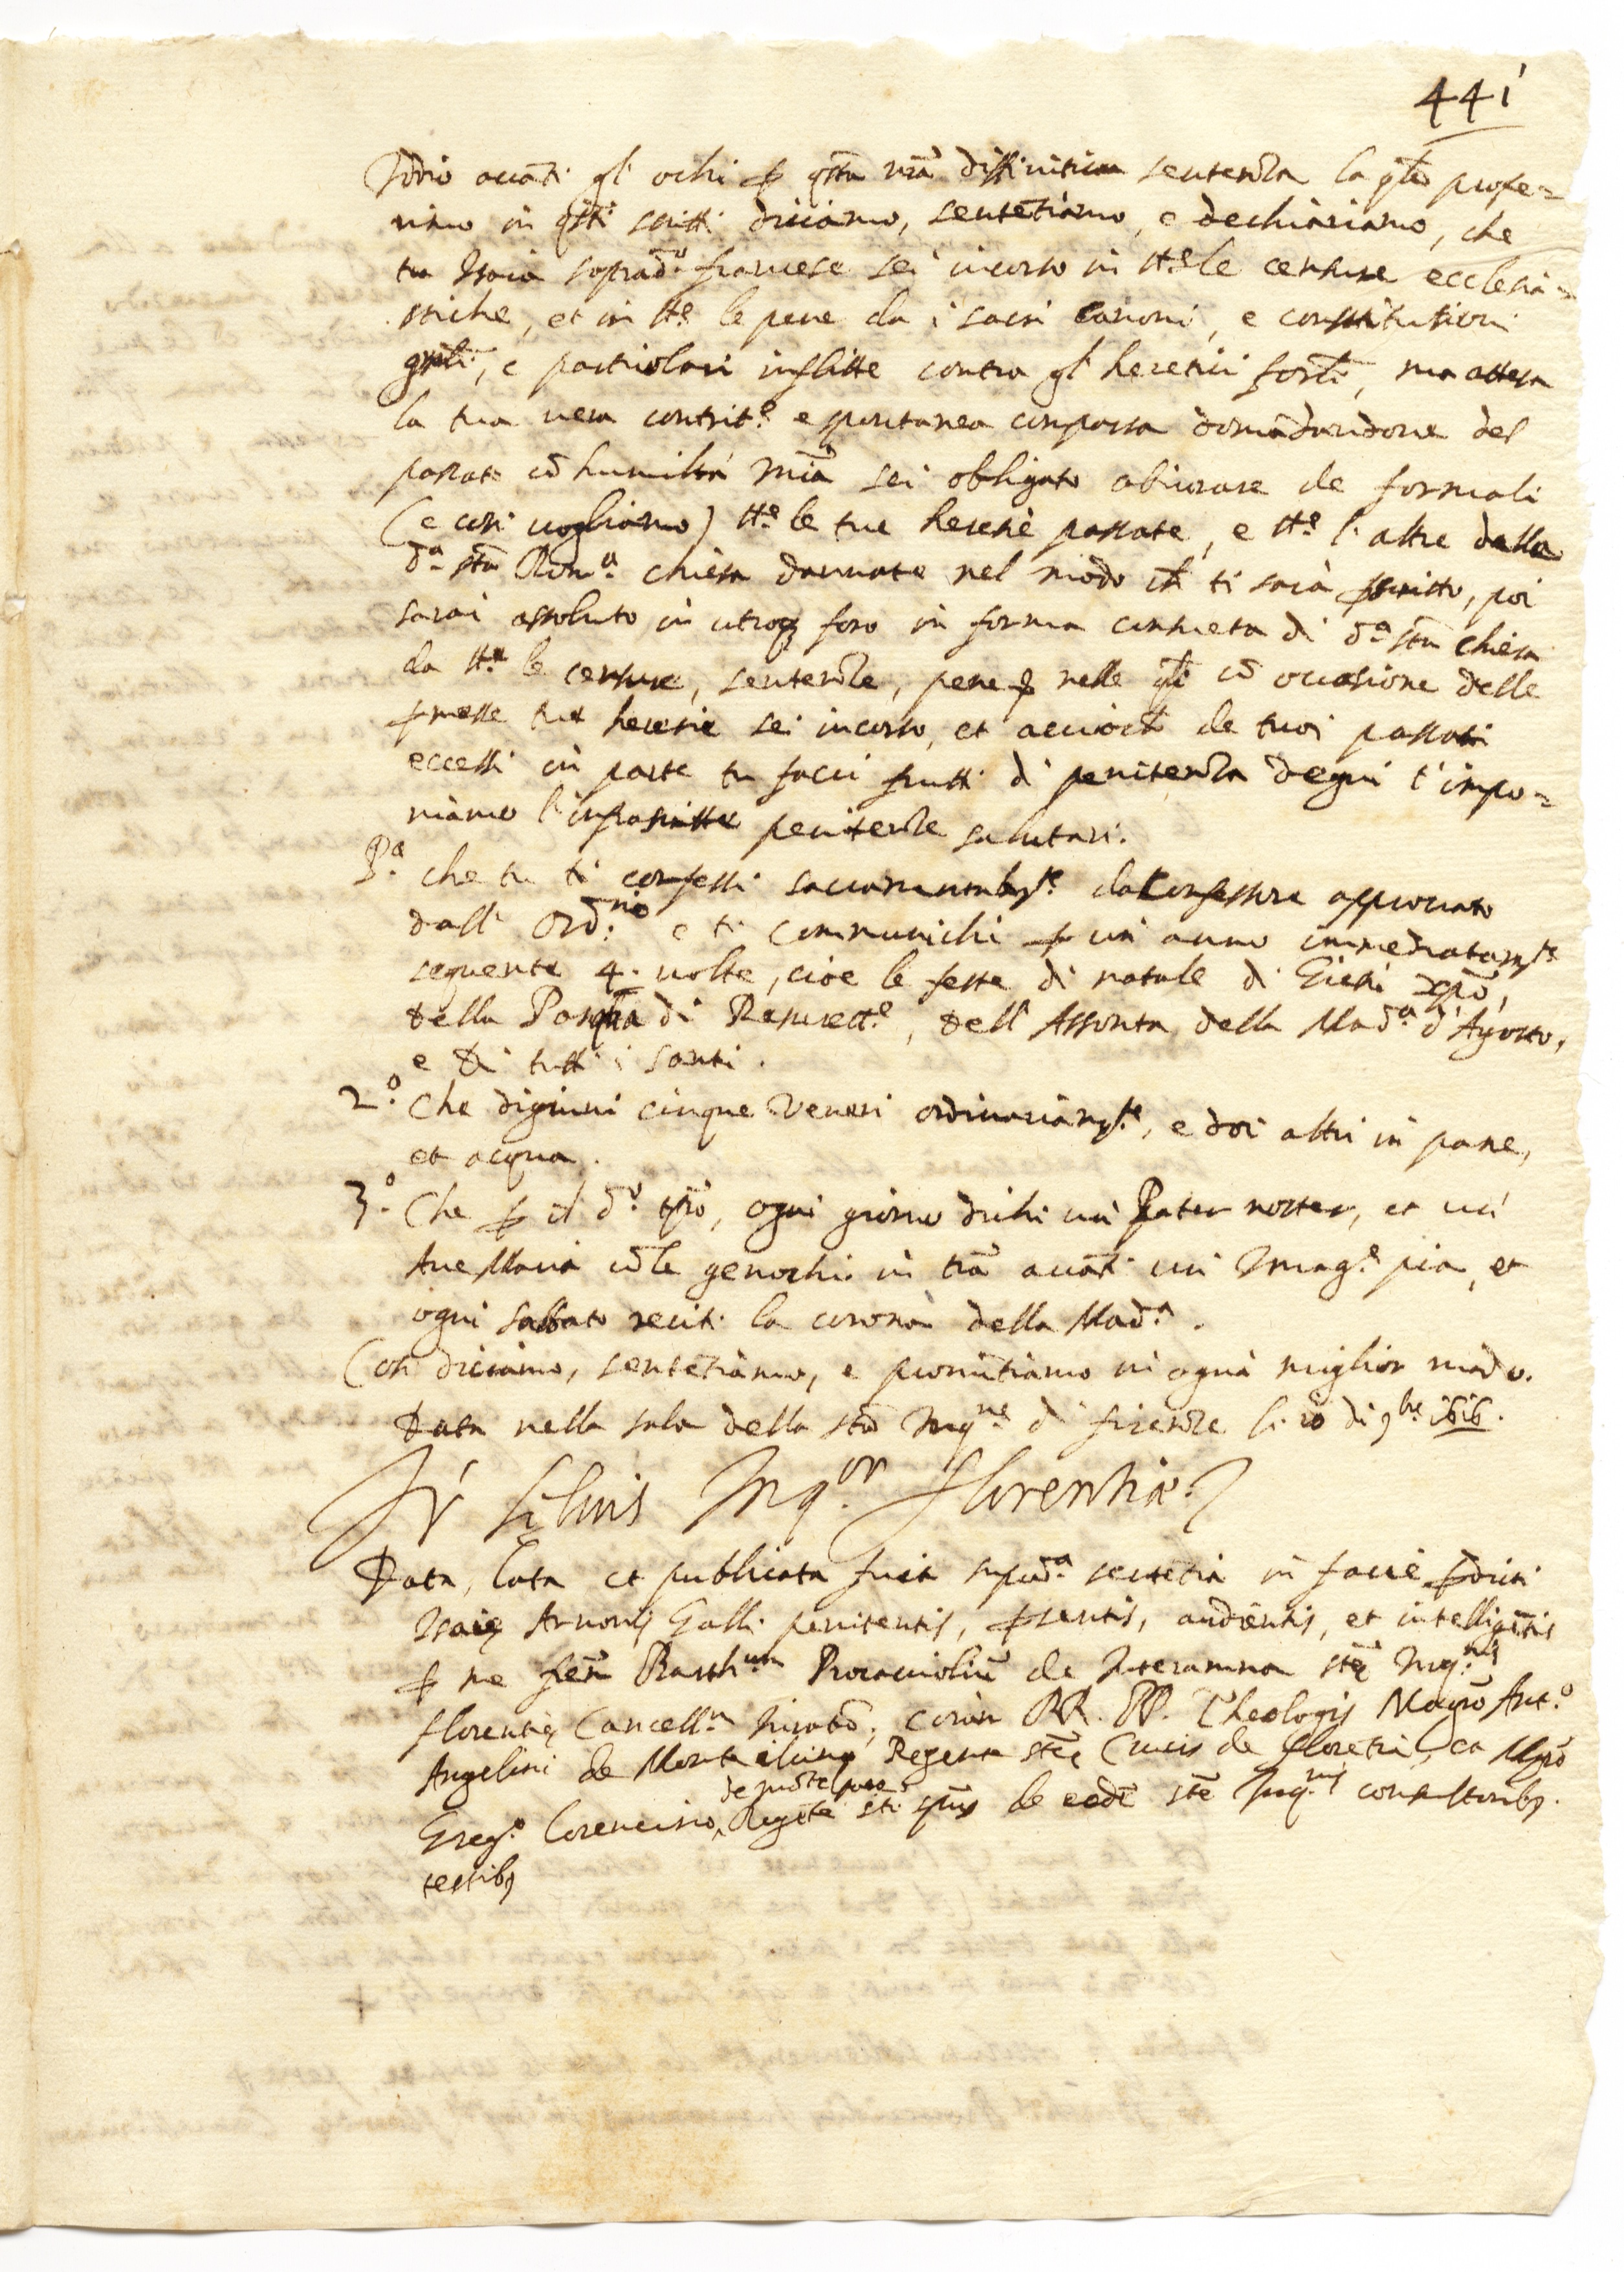 441
Iddio auāti gl' ochi ꝑ qsta nrā diffinitiua sentenza la qle profe=
rimo in qsti scritti diciamo, sentētiamo, e dechiariamo, che
tu Isaia soprad.º francese sei incorso in tt.e le censure ecclesia=
stiche, et in tt.e le pene da i sacri canoni, e constitutioni
gnli, e particolari inflitte contro gl' heretici formli, ma attesa
la tua uera contrit.e e spontanea comparsa domādandone del
passato cō humiltà mīa sei obligato abiurare de formali
(e cosi uogliamo) tt.e le tue heresie passate, e tt.e l'altre dalla
d.a sta Rom.a chiesa dannate nel modo ch ti sarà ꝑscritto, poi
sarai assoluto in utroq foro in forma consueta di d.a sta chiesa
da tt.e le censure, sentenze, pene nelle qli cō occasione delle
ꝑmesse tue heresie sei incorso, et accioch de tuoi passati
eccessi in parte tu facci frutti di penitenza degni t'impo=
niamo l'infrascritte penitenze salutari.
P.a che tu ti confessi sacramentalmte. da Confessore approuato
dall' Ord.rio e ti communichi ꝑ un anno immediatamte.
seguente 4. uolte, cioe le feste di natale di Giesù xpō,
della Pasqua di Resurett.e, dell' Assonta della Mad.a d'Agosto,
e di tutti i santi.
2.º Che digiuni cinque Veneri ordinariamte., e doi altri in pane,
et acqua.
3.º Che ꝑ il d.º tpō, ogni giorno dichi un Pater noster, et un'
Aue Maria cō le genochi in trā auāti un' Imag.e pia, et
ogni sabbato reciti la corona della Mad.a.
Cosi diciamo, sentētiamo, e pronūtiamo in ogni miglior modo.
Data nella sala della sta Inq.ne di firenze li 10 di 9bre 1616.
Fr' Lelius Inq.or Florentiæ.
Data, lata et publicata fuit suprad.a sentētia in facie ꝑdicti
Isaię Arnonis Galli penitentis, ꝑsentis, audientis, et intelligētis
ꝑ me frem Barth.um Procaciolū de Interamna stę Inq.nis
florentię Cancell.m iuratō; corā RR. PP. Theologis Magrō Ant.º
Angelini de Monte ilcino Regente stę Crucis de florētia, et Mgrō
de mōte
Greg.º Lorencino, Regēte sti spūs de eadē stę Inq.nis consultoribq.
testibq